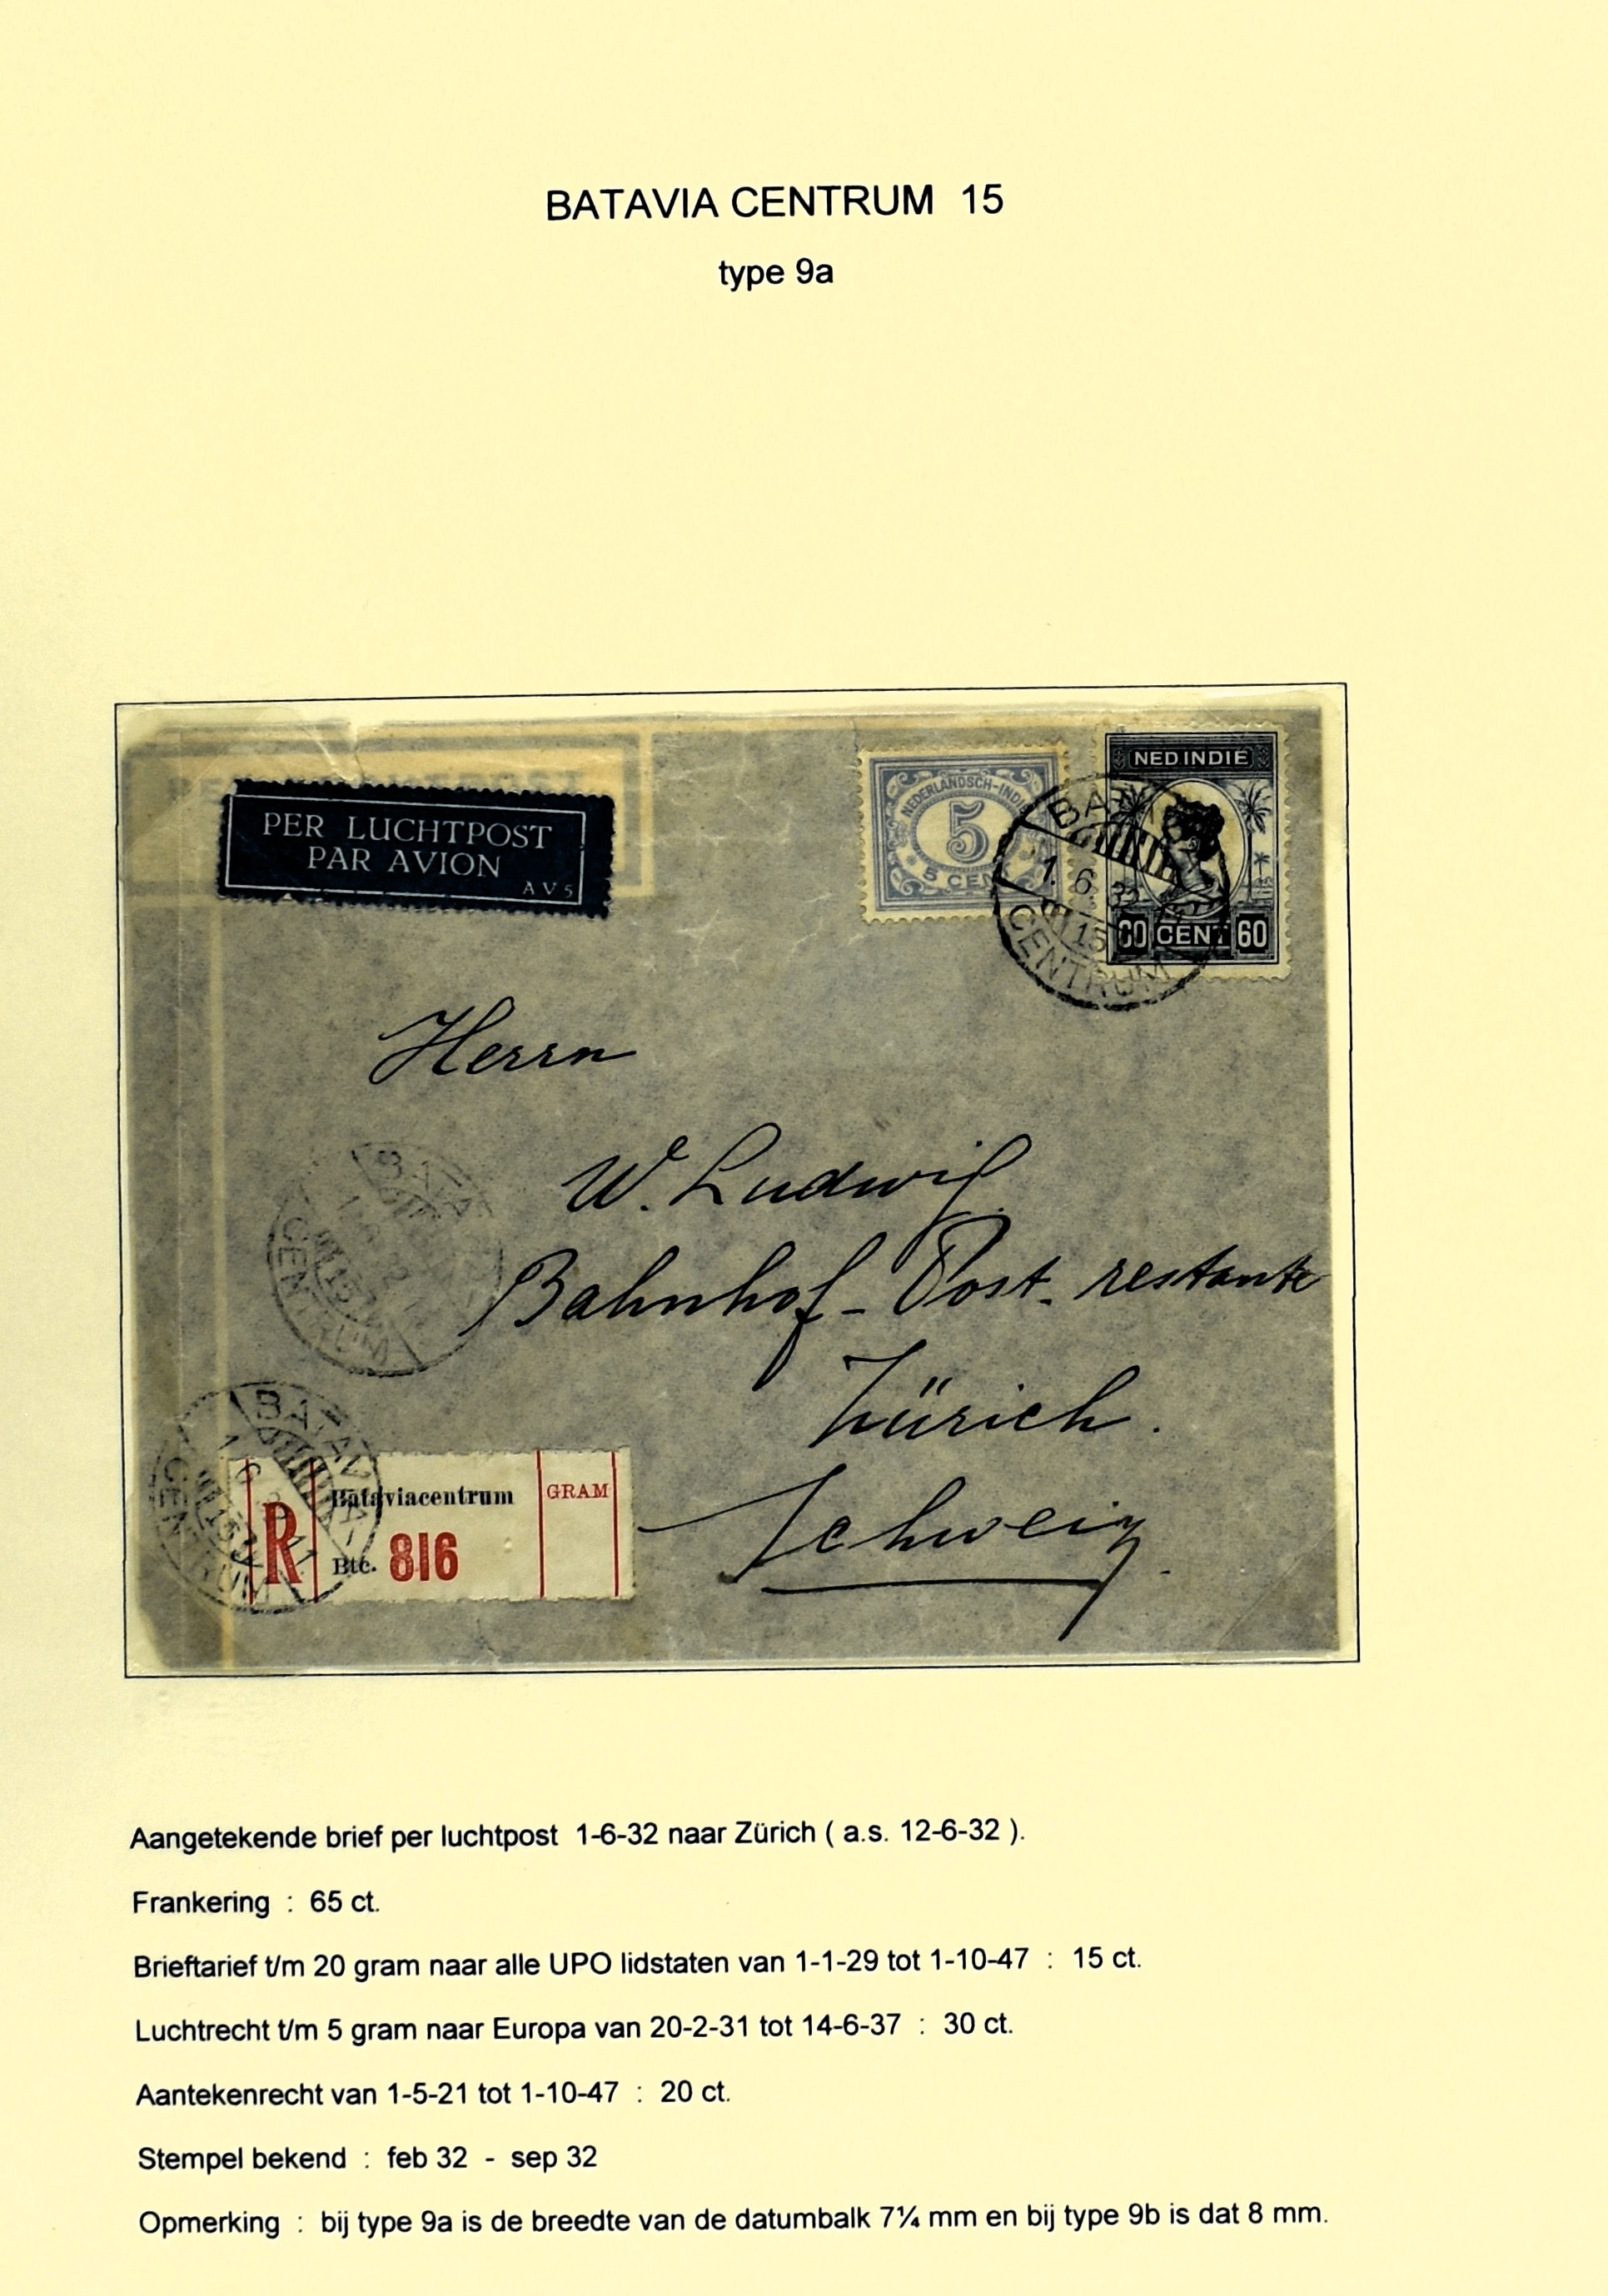 BATAVIA CENTRUM 15
type 9a
PER LUCHTPOST
PAR AVION
AV5
NEDERLANDSCH-INDIË
5
5 CENT
NED INDIË
60 CENT 60
BATAVIA
1. 6 32
15
CENTRUM
Herrn
W. Ludwig
Bahnhof - Post - restante
Zürich.
Schweiz.
BATAVIA
15
CENTRUM
BATAVIA-
15
CENTRUM
R
Bataviacentrum
Btc. 816
GRAM
Aangetekende brief per luchtpost 1-6-32 naar Zürich ( a.s. 12-6-32 ).
Frankering : 65 ct.
Brieftarief t/m 20 gram naar alle UPO lidstaten van 1-1-29 tot 1-10-47 : 15 ct.
Luchtrecht t/m 5 gram naar Europa van 20-2-31 tot 14-6-37 : 30 ct.
Aantekenrecht van 1-5-21 tot 1-10-47 : 20 ct.
Stempel bekend : feb 32 - sep 32
Opmerking : bij type 9a is de breedte van de datumbalk 7¼ mm en bij type 9b is dat 8 mm.